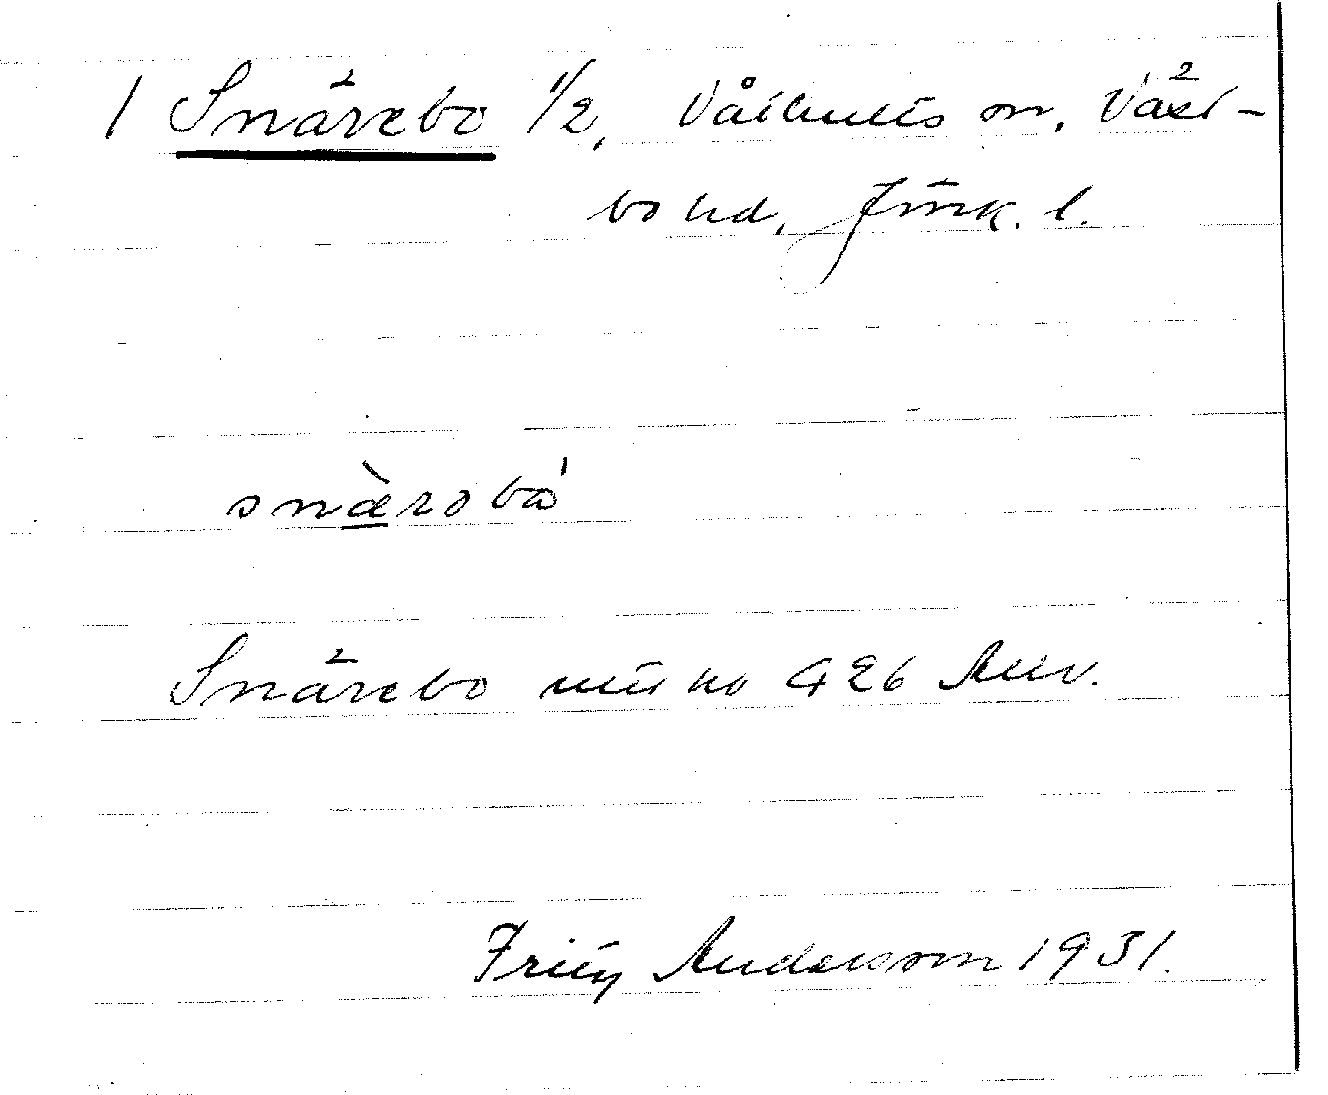 1 Snärebo 1/2, Våthults sn, Väst-
bo hd, Jönk. l.
snæ̀robá
Snärebo mtl no 426
Fritz Andersson 1931.